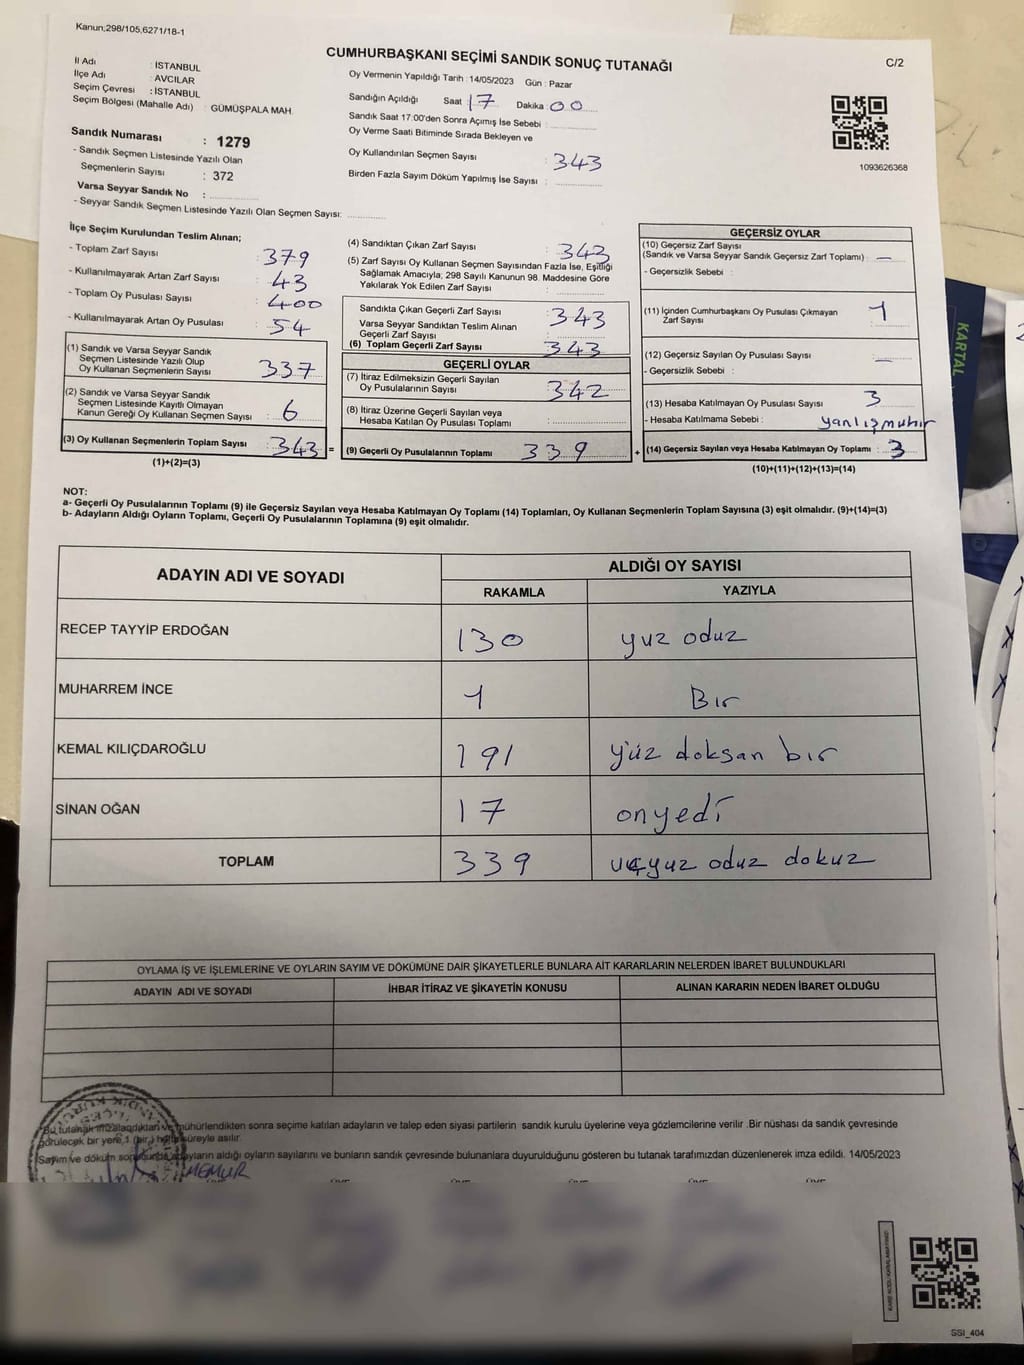 Kanun;298/105,6271/18-1
CUMHURBAŞKANI SEÇİMİ SANDIK SONUÇ TUTANAĞI
C/2
İl Adı : İSTANBUL
İlçe Adı : AVCILAR
Seçim Çevresi : İSTANBUL
Seçim Bölgesi (Mahalle Adı) : GÜMÜŞPALA MAH.
Sandık Numarası : 1279
- Sandık Seçmen Listesinde Yazılı Olan
Seçmenlerin Sayısı : 372
Varsa Seyyar Sandık No :
- Seyyar Sandık Seçmen Listesinde Yazılı Olan Seçmen Sayısı:
Oy Vermenin Yapıldığı Tarih : 14/05/2023 Gün : Pazar
Sandığın Açıldığı Saat : 17 Dakika : 00
Sandık Saat 17.00'den Sonra Açımış İse Sebebi :
Oy Verme Saati Bitiminde Sırada Bekleyen ve
Oy Kullandırılan Seçmen Sayısı : 343
Birden Fazla Sayım Döküm Yapılmış İse Sayısı :
1093626368
İlçe Seçim Kurulundan Teslim Alınan;
- Toplam Zarf Sayısı : 379
- Kullanılmayarak Artan Zarf Sayısı : 43
- Toplam Oy Pusulası Sayısı : 400
- Kullanılmayarak Artan Oy Pusulası : 54
(1) Sandık ve Varsa Seyyar Sandık
Seçmen Listesinde Yazılı Olup
Oy Kullanan Seçmenlerin Sayısı : 337
(2) Sandık ve Varsa Seyyar Sandık
Seçmen Listesinde Kayıtlı Olmayan
Kanun Gereği Oy Kullanan Seçmen Sayısı : 6
(3) Oy Kullanan Seçmenlerin Toplam Sayısı : 343 =
(1)+(2)=(3)
(4) Sandıktan Çıkan Zarf Sayısı : 343
(5) Zarf Sayısı Oy Kullanan Seçmen Sayısından Fazla İse, Eşitliği
Sağlamak Amacıyla; 298 Sayılı Kanunun 98. Maddesine Göre
Yakılarak Yok Edilen Zarf Sayısı :
Sandıkta Çıkan Geçerli Zarf Sayısı : 343
Varsa Seyyar Sandıktan Teslim Alınan
Geçerli Zarf Sayısı :
(6) Toplam Geçerli Zarf Sayısı : 343
GEÇERLİ OYLAR
(7) İtiraz Edilmeksizin Geçerli Sayılan
Oy Pusulalarının Sayısı : 342
(8) İtiraz Üzerine Geçerli Sayılan veya
Hesaba Katılan Oy Pusulası Toplamı :
(9) Geçerli Oy Pusulalarının Toplamı : 339 +
GEÇERSİZ OYLAR
(10) Geçersiz Zarf Sayısı
(Sandık ve Varsa Seyyar Sandık Geçersiz Zarf Toplamı) : —
- Geçersizlik Sebebi :
(11) İçinden Cumhurbaşkanı Oy Pusulası Çıkmayan
Zarf Sayısı : 1
(12) Geçersiz Sayılan Oy Pusulası Sayısı : —
- Geçersizlik Sebebi :
(13) Hesaba Katılmayan Oy Pusulası Sayısı : 3
- Hesaba Katılmama Sebebi : yanlışmuhir
(14) Geçersiz Sayılan veya Hesaba Katılmayan Oy Toplamı : 3
(10)+(11)+(12)+(13)=(14)
NOT:
a- Geçerli Oy Pusulalarının Toplamı (9) ile Geçersiz Sayılan veya Hesaba Katılmayan Oy Toplamı (14) Toplamları, Oy Kullanan Seçmenlerin Toplam Sayısına (3) eşit olmalıdır. (9)+(14)=(3)
b- Adayların Aldığı Oyların Toplamı, Geçerli Oy Pusulalarının Toplamına (9) eşit olmalıdır.
ADAYIN ADI VE SOYADI ALDIĞI OY SAYISI
RAKAMLA YAZIYLA
RECEP TAYYİP ERDOĞAN 130 yuz oduz
MUHARREM İNCE 1 Bır
KEMAL KILIÇDAROĞLU 191 yüz doksan bır
SİNAN OĞAN 17 onyedi
TOPLAM 339 uçyuz oduz dokuz
OYLAMA İŞ VE İŞLEMLERİNE VE OYLARIN SAYIM VE DÖKÜMÜNE DAİR ŞİKAYETLERLE BUNLARA AİT KARARLARIN NELERDEN İBARET BULUNDUKLARI
ADAYIN ADI VE SOYADI İHBAR İTİRAZ VE ŞİKAYETİN KONUSU ALINAN KARARIN NEDEN İBARET OLDUĞU
Bu tutanak imzalandıktan ve mühürlendikten sonra seçime katılan adayların ve talep eden siyasi partilerin sandık kurulu üyelerine veya gözlemcilerine verilir .Bir nüshası da sandık çevresinde
görülecek bir yere,1 (bir) hafta süreyle asılır.
Sayım ve döküm sonucunda adayların aldığı oyların sayılarını ve bunların sandık çevresinde bulunanlara duyurulduğunu gösteren bu tutanak tarafımızdan düzenlenerek imza edildi. 14/05/2023
MEMUR
SSI_404
KARTAL